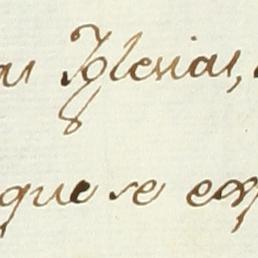 as Iglesias,
que se exp